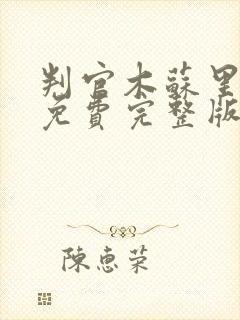 判官木蘇里
免費完整版
陳惠荣